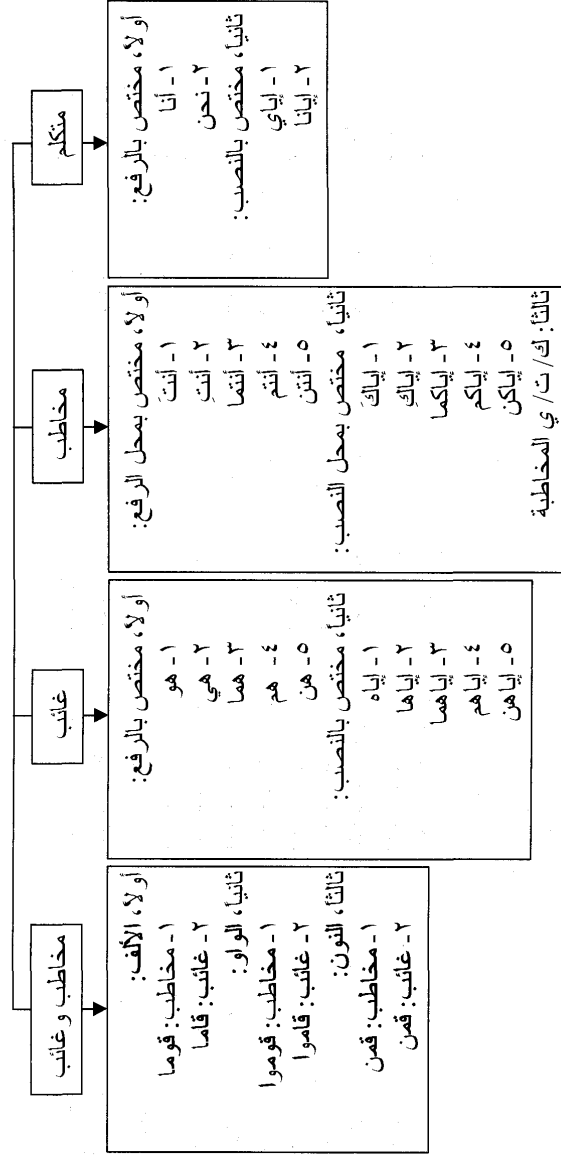 متكلم
أولاً، مختص بالرفع:
١- أنا
٢- نحن
ثانياً، مختص بالنصب:
١- إياي
٢- إيانا
مخاطب
أولاً، مختص بمحل الرفع:
١- أنتَ
٢- أنتِ
٣- أنتما
٤- أنتم
٥- أنتن
ثانياً، مختص بمحل النصب:
١- إياكَ
٢- إياكِ
٣- إياكما
٤- إياكم
٥- إياكن
ثالثاً: ك/ ت/ ي المخاطبة
غائب
أولاً، مختص بالرفع:
١- هو
٢- هي
٣- هما
٤- هم
٥- هن
ثانياً، مختص بالنصب:
١- إياه
٢- إياها
٣- إياهما
٤- إياهم
٥- إياهن
مخاطب وغائب
أولاً، الألف:
١- مخاطب: قوما
٢- غائب: قاما
ثانياً، الواو:
١- مخاطب: قوموا
٢- غائب: قاموا
ثالثاً، النون:
١- مخاطب: قمن
٢- غائب: قمن